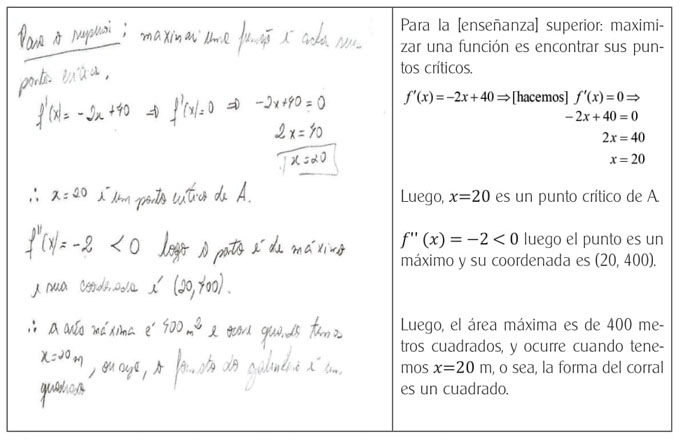 Para o superior: maximizar uma função é achar seu
ponto crítico.
f'(x) = -2x+40 ⇒ f'(x)=0 ⇒ -2x+40=0
2x=40
x=20
∴ x=20 é um ponto crítico de A.
f''(x) = -2 < 0 logo o ponto é de máximo
e sua coordenada é (20,400).
∴ a área máxima é 400 m² e ocorre quando temos
x=20m, ou seja, o formato do galinheiro é um
quadrado
Para la [enseñanza] superior: maximi-
zar una función es encontrar sus pun-
tos críticos.
f'(x)=-2x+40⇒[hacemos] f'(x)=0⇒
-2x+40=0
2x=40
x=20
Luego, x=20 es un punto crítico de A.
f''(x) = -2 < 0 luego el punto es un
máximo y su coordenada es (20, 400).
Luego, el área máxima es de 400 me-
tros cuadrados, y ocurre cuando tene-
mos x=20 m, o sea, la forma del corral
es un cuadrado.